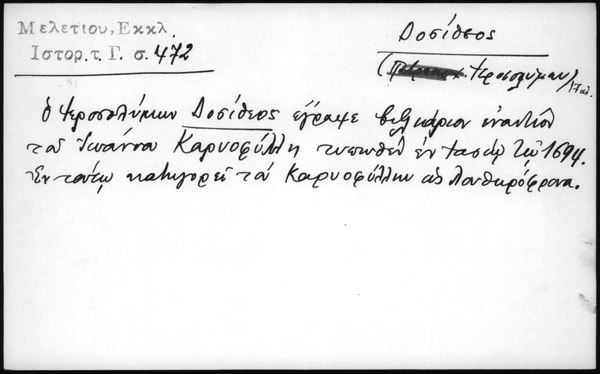 Μελετίου, Εκκλ.
Ιστορ. τ. Γ. σ. 472
Δοσίθεος
( Ἱεροσολύμων)
ὁ Ἱεροσολύμων Δοσίθεος ἔγραψε βιβλιάριον ἐναντίον
τοῦ Ἰωάννου Καρυοφύλλη τυπωθὲν ἐν Ἰασίῳ τῷ 1694.
Ἐν τούτῳ κατηγορεῖ τοῦ Καρυοφύλλη ὡς λουθηρόφρονα.